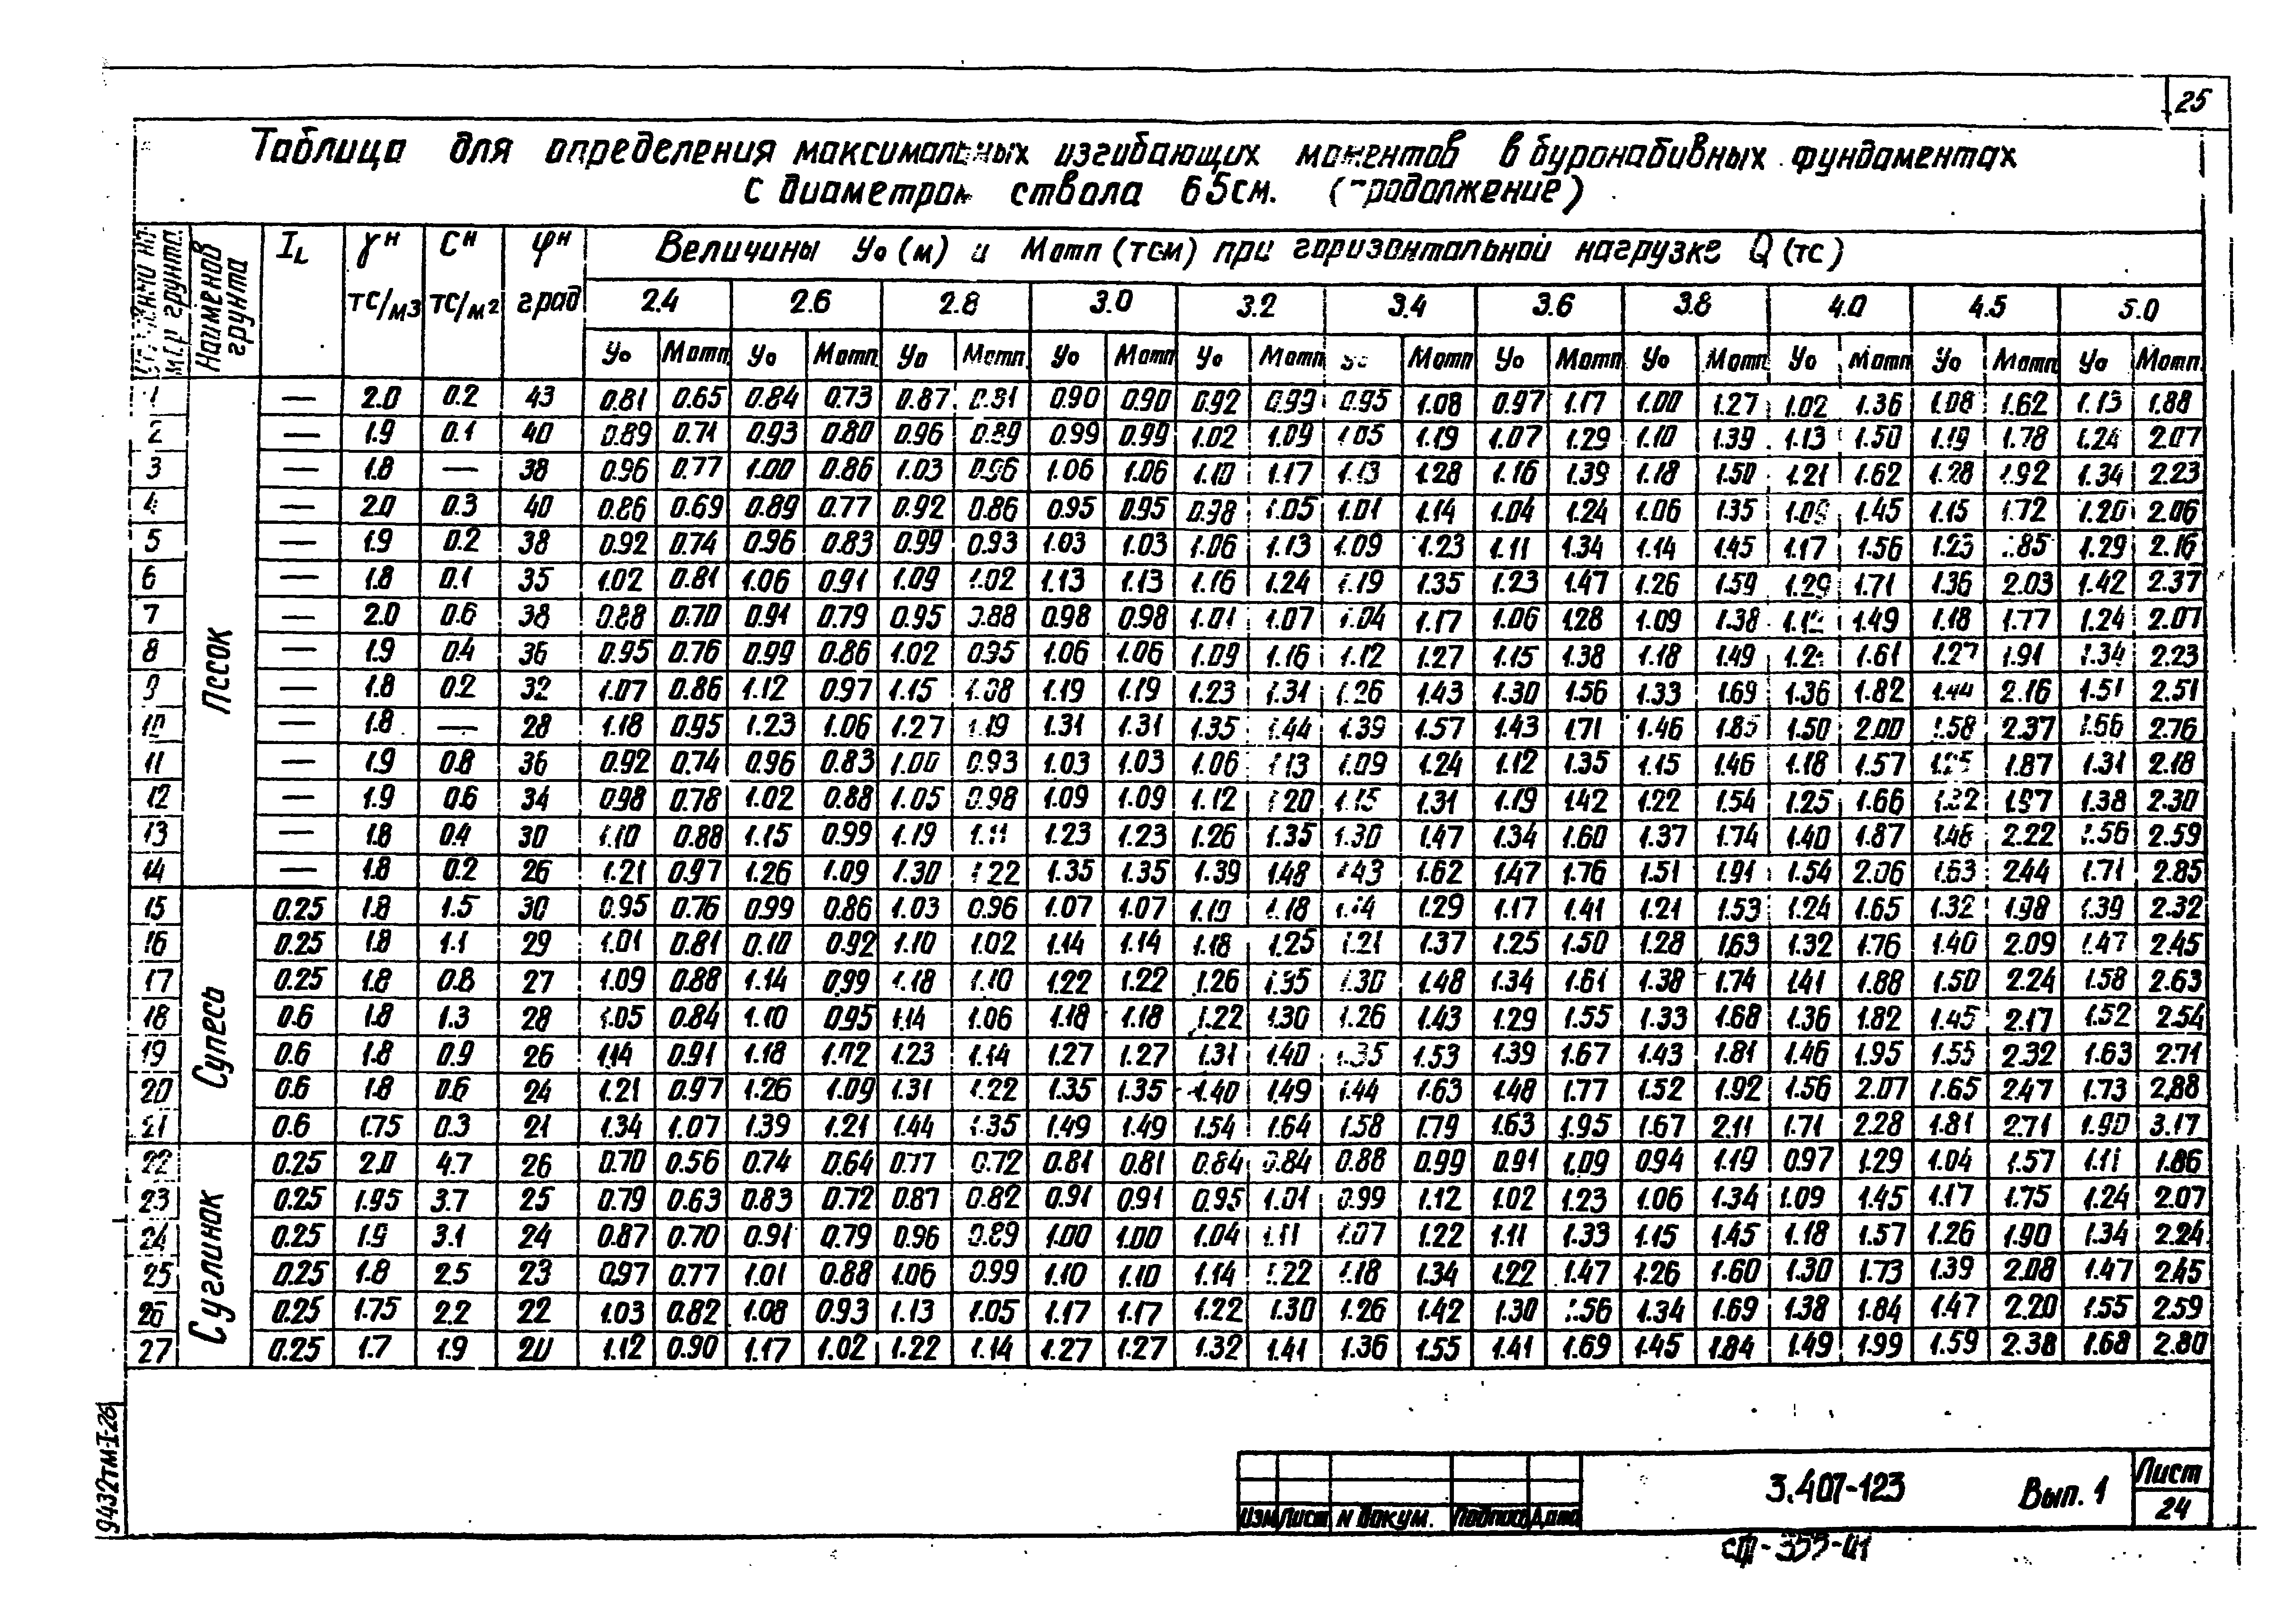 25
Таблица для определения максимальных изгибающих моментов в буронабивных фундаментах
с диаметром ствола 65см. (продолжение)
Наименов грунта I_L γᴴ тс/м3 Cᴴ тс/м2 φᴴ град Величины Уо (м) и Мотп (тсм) при горизонтальной нагрузке Q (тс)
2.4 2.6 2.8 3.0 3.2 3.4 3.6 3.8 4.0 4.5 5.0
Уо Мотп Уо Мотп Уо Мотп Уо Мотп Уо Мотп Уо Мотп Уо Мотп Уо Мотп Уо Мотп Уо Мотп Уо Мотп
Песок
1 — 2.0 0.2 43 0.81 0.65 0.84 0.73 0.87 0.81 0.90 0.90 0.92 0.99 0.95 1.08 0.97 1.17 1.00 1.27 1.02 1.36 1.08 1.62 1.13 1.88
2 — 1.9 0.1 40 0.89 0.71 0.93 0.80 0.96 0.89 0.99 0.99 1.02 1.09 1.05 1.19 1.07 1.29 1.10 1.39 1.13 1.50 1.19 1.78 1.24 2.07
3 — 1.8 — 38 0.96 0.77 1.00 0.86 1.03 0.96 1.06 1.06 1.10 1.17 1.13 1.28 1.16 1.39 1.18 1.50 1.21 1.62 1.28 1.92 1.34 2.23
4 — 2.0 0.3 40 0.86 0.69 0.89 0.77 0.92 0.86 0.95 0.95 0.98 1.05 1.01 1.14 1.04 1.24 1.06 1.35 1.09 1.45 1.15 1.72 1.20 2.06
5 — 1.9 0.2 38 0.92 0.74 0.96 0.83 0.99 0.93 1.03 1.03 1.06 1.13 1.09 1.23 1.11 1.34 1.14 1.45 1.17 1.56 1.23 1.85 1.29 2.16
6 — 1.8 0.1 35 1.02 0.81 1.06 0.91 1.09 1.02 1.13 1.13 1.16 1.24 1.19 1.35 1.23 1.47 1.26 1.59 1.29 1.71 1.36 2.03 1.42 2.37
7 — 2.0 0.6 38 0.88 0.70 0.91 0.79 0.95 0.88 0.98 0.98 1.01 1.07 1.04 1.17 1.06 1.28 1.09 1.38 1.12 1.49 1.18 1.77 1.24 2.07
8 — 1.9 0.4 36 0.95 0.76 0.99 0.86 1.02 0.95 1.06 1.06 1.09 1.16 1.12 1.27 1.15 1.38 1.18 1.49 1.21 1.61 1.27 1.91 1.34 2.23
9 — 1.8 0.2 32 1.07 0.86 1.12 0.97 1.15 1.08 1.19 1.19 1.23 1.31 1.26 1.43 1.30 1.56 1.33 1.69 1.36 1.82 1.44 2.16 1.51 2.51
10 — 1.8 — 28 1.18 0.95 1.23 1.06 1.27 1.19 1.31 1.31 1.35 1.44 1.39 1.57 1.43 1.71 1.46 1.85 1.50 2.00 1.58 2.37 1.66 2.76
11 — 1.9 0.8 36 0.92 0.74 0.96 0.83 1.00 0.93 1.03 1.03 1.06 1.13 1.09 1.24 1.12 1.35 1.15 1.46 1.18 1.57 1.25 1.87 1.31 2.18
12 — 1.9 0.6 34 0.98 0.78 1.02 0.88 1.05 0.98 1.09 1.09 1.12 1.20 1.15 1.31 1.19 1.42 1.22 1.54 1.25 1.66 1.32 1.97 1.38 2.30
13 — 1.8 0.4 30 1.10 0.88 1.15 0.99 1.19 1.11 1.23 1.23 1.26 1.35 1.30 1.47 1.34 1.60 1.37 1.74 1.40 1.87 1.48 2.22 1.56 2.59
14 — 1.8 0.2 26 1.21 0.97 1.26 1.09 1.30 1.22 1.35 1.35 1.39 1.48 1.43 1.62 1.47 1.76 1.51 1.91 1.54 2.06 1.63 2.44 1.71 2.85
Супесь
15 0.25 1.8 1.5 30 0.95 0.76 0.99 0.86 1.03 0.96 1.07 1.07 1.10 1.18 1.14 1.29 1.17 1.41 1.21 1.53 1.24 1.65 1.32 1.98 1.39 2.32
16 0.25 1.8 1.1 29 1.01 0.81 0.10 0.92 1.10 1.02 1.14 1.14 1.18 1.25 1.21 1.37 1.25 1.50 1.28 1.63 1.32 1.76 1.40 2.09 1.47 2.45
17 0.25 1.8 0.8 27 1.09 0.88 1.14 0.99 1.18 1.10 1.22 1.22 1.26 1.35 1.30 1.48 1.34 1.61 1.38 1.74 1.41 1.88 1.50 2.24 1.58 2.63
18 0.6 1.8 1.3 28 1.05 0.84 1.10 0.95 1.14 1.06 1.18 1.18 1.22 1.30 1.26 1.43 1.29 1.55 1.33 1.68 1.36 1.82 1.45 2.17 1.52 2.54
19 0.6 1.8 0.9 26 1.14 0.91 1.18 1.02 1.23 1.14 1.27 1.27 1.31 1.40 1.35 1.53 1.39 1.67 1.43 1.81 1.46 1.95 1.55 2.32 1.63 2.71
20 0.6 1.8 0.6 24 1.21 0.97 1.26 1.09 1.31 1.22 1.35 1.35 1.40 1.49 1.44 1.63 1.48 1.77 1.52 1.92 1.56 2.07 1.65 2.47 1.73 2.88
21 0.6 1.75 0.3 21 1.34 1.07 1.39 1.21 1.44 1.35 1.49 1.49 1.54 1.64 1.58 1.79 1.63 1.95 1.67 2.11 1.71 2.28 1.81 2.71 1.90 3.17
Суглинок
22 0.25 2.0 4.7 26 0.70 0.56 0.74 0.64 0.77 0.72 0.81 0.81 0.84 0.84 0.88 0.99 0.91 1.09 0.94 1.19 0.97 1.29 1.04 1.57 1.11 1.86
23 0.25 1.95 3.7 25 0.79 0.63 0.83 0.72 0.87 0.82 0.91 0.91 0.95 1.01 0.99 1.12 1.02 1.23 1.06 1.34 1.09 1.45 1.17 1.75 1.24 2.07
24 0.25 1.9 3.1 24 0.87 0.70 0.91 0.79 0.96 0.89 1.00 1.00 1.04 1.11 1.07 1.22 1.11 1.33 1.15 1.45 1.18 1.57 1.26 1.90 1.34 2.24
25 0.25 1.8 2.5 23 0.97 0.77 1.01 0.88 1.06 0.99 1.10 1.10 1.14 1.22 1.18 1.34 1.22 1.47 1.26 1.60 1.30 1.73 1.39 2.08 1.47 2.45
26 0.25 1.75 2.2 22 1.03 0.82 1.08 0.93 1.13 1.05 1.17 1.17 1.22 1.30 1.26 1.42 1.30 1.56 1.34 1.69 1.38 1.84 1.47 2.20 1.55 2.59
27 0.25 1.7 1.9 20 1.12 0.90 1.17 1.02 1.22 1.14 1.27 1.27 1.32 1.41 1.36 1.55 1.41 1.69 1.45 1.84 1.49 1.99 1.59 2.38 1.68 2.80
9432тм-I-26
Изм Лист N докум. Подпись Дата
3.407-123 Вып. 1
Лист
24